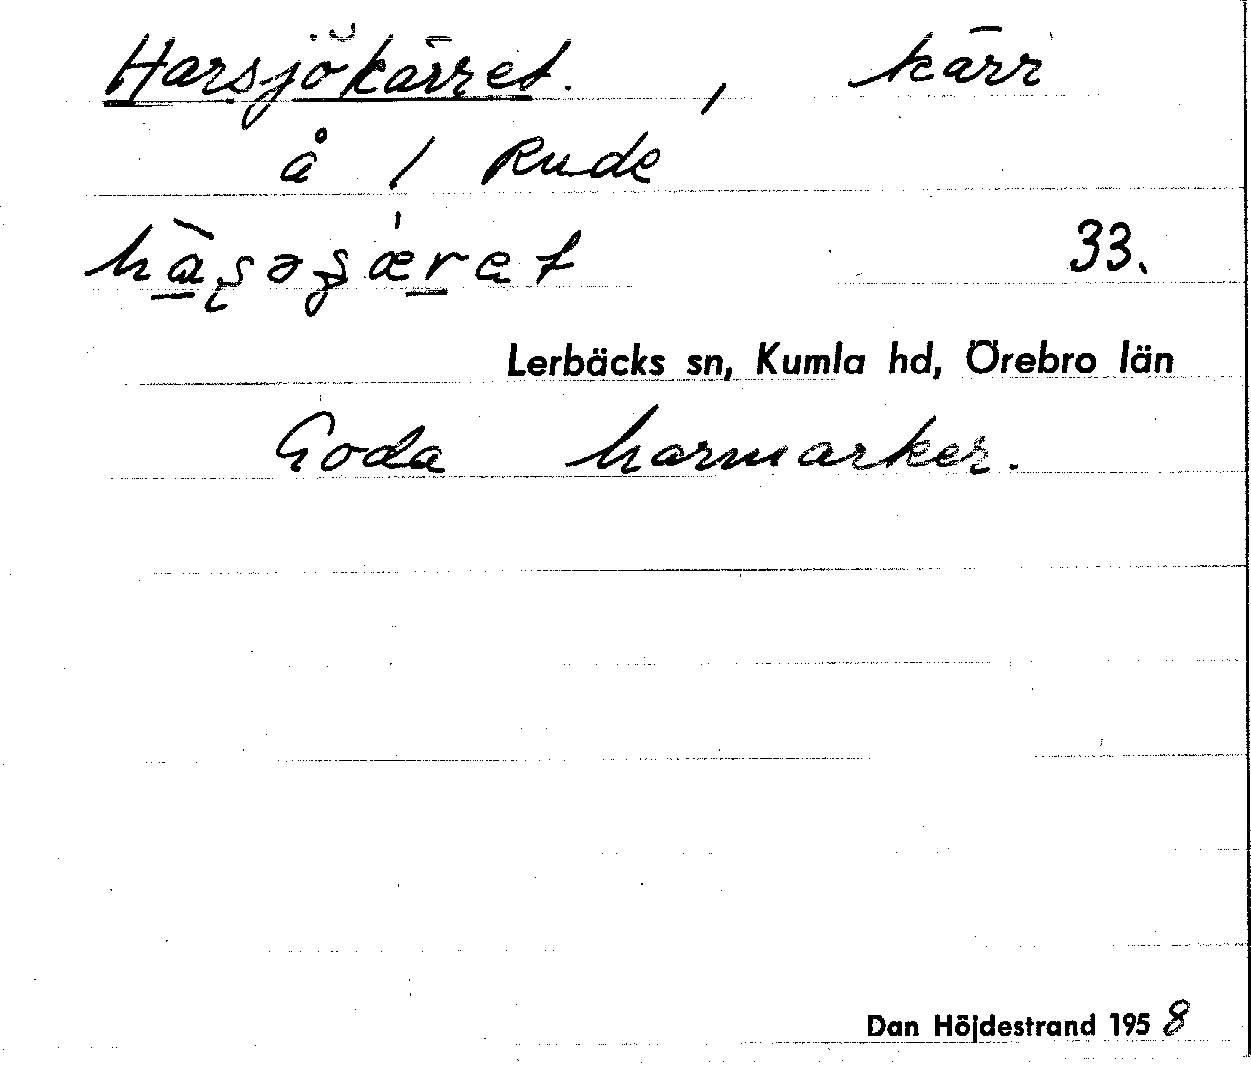 Harsjökärret. , kärr
å / Rude
33.
Lerbäcks sn, Kumla hd, Örebro län
Goda harmarker.
Dan Höjdestrand 1958